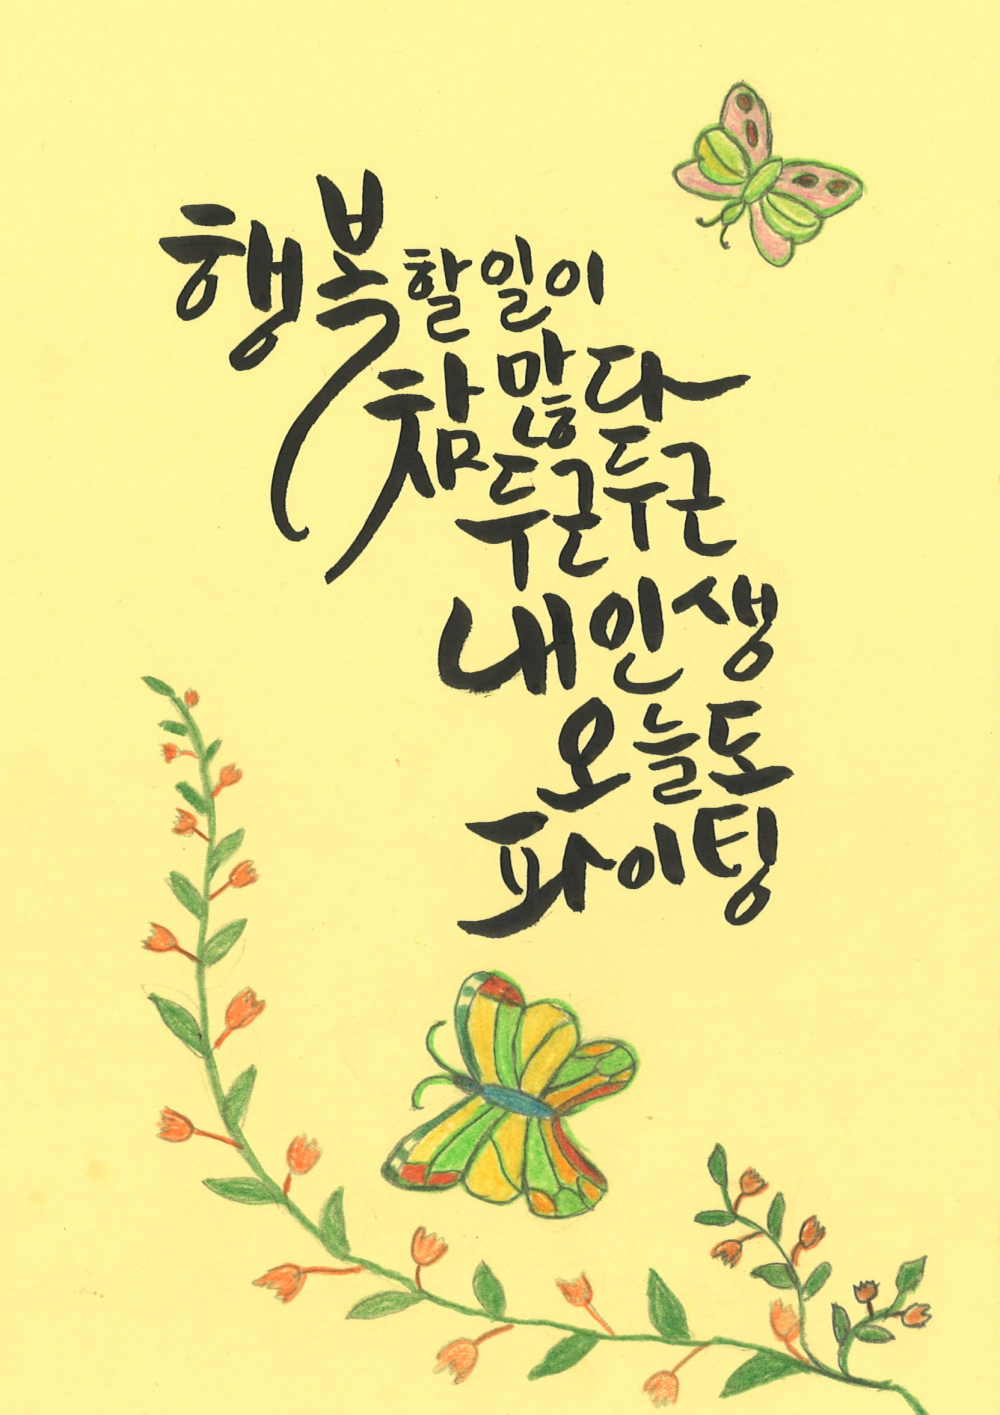 행복할 일이
참 많다
두근두근
내 인생
오늘도
파이팅